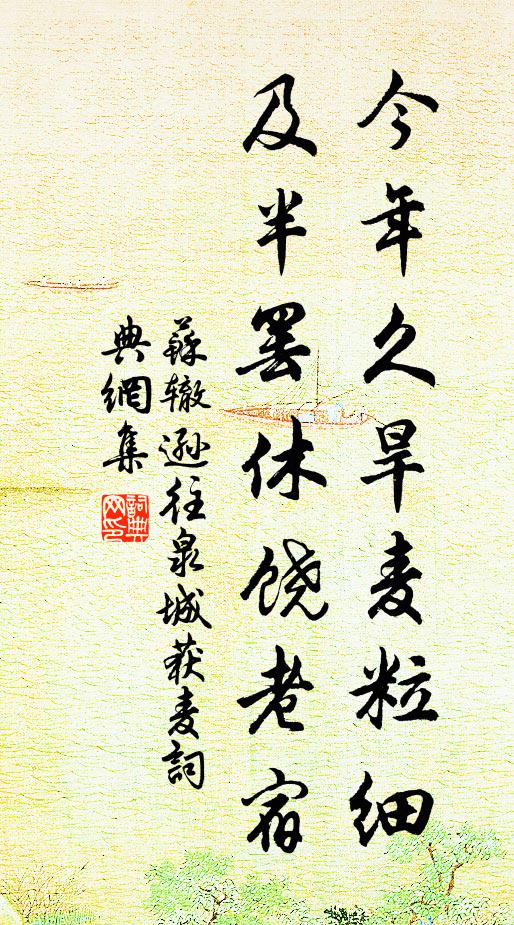 今年久旱麦粒细
及半罢休饶老宿
蘇辙逊往泉城获麦詞
典網集
詞典網印